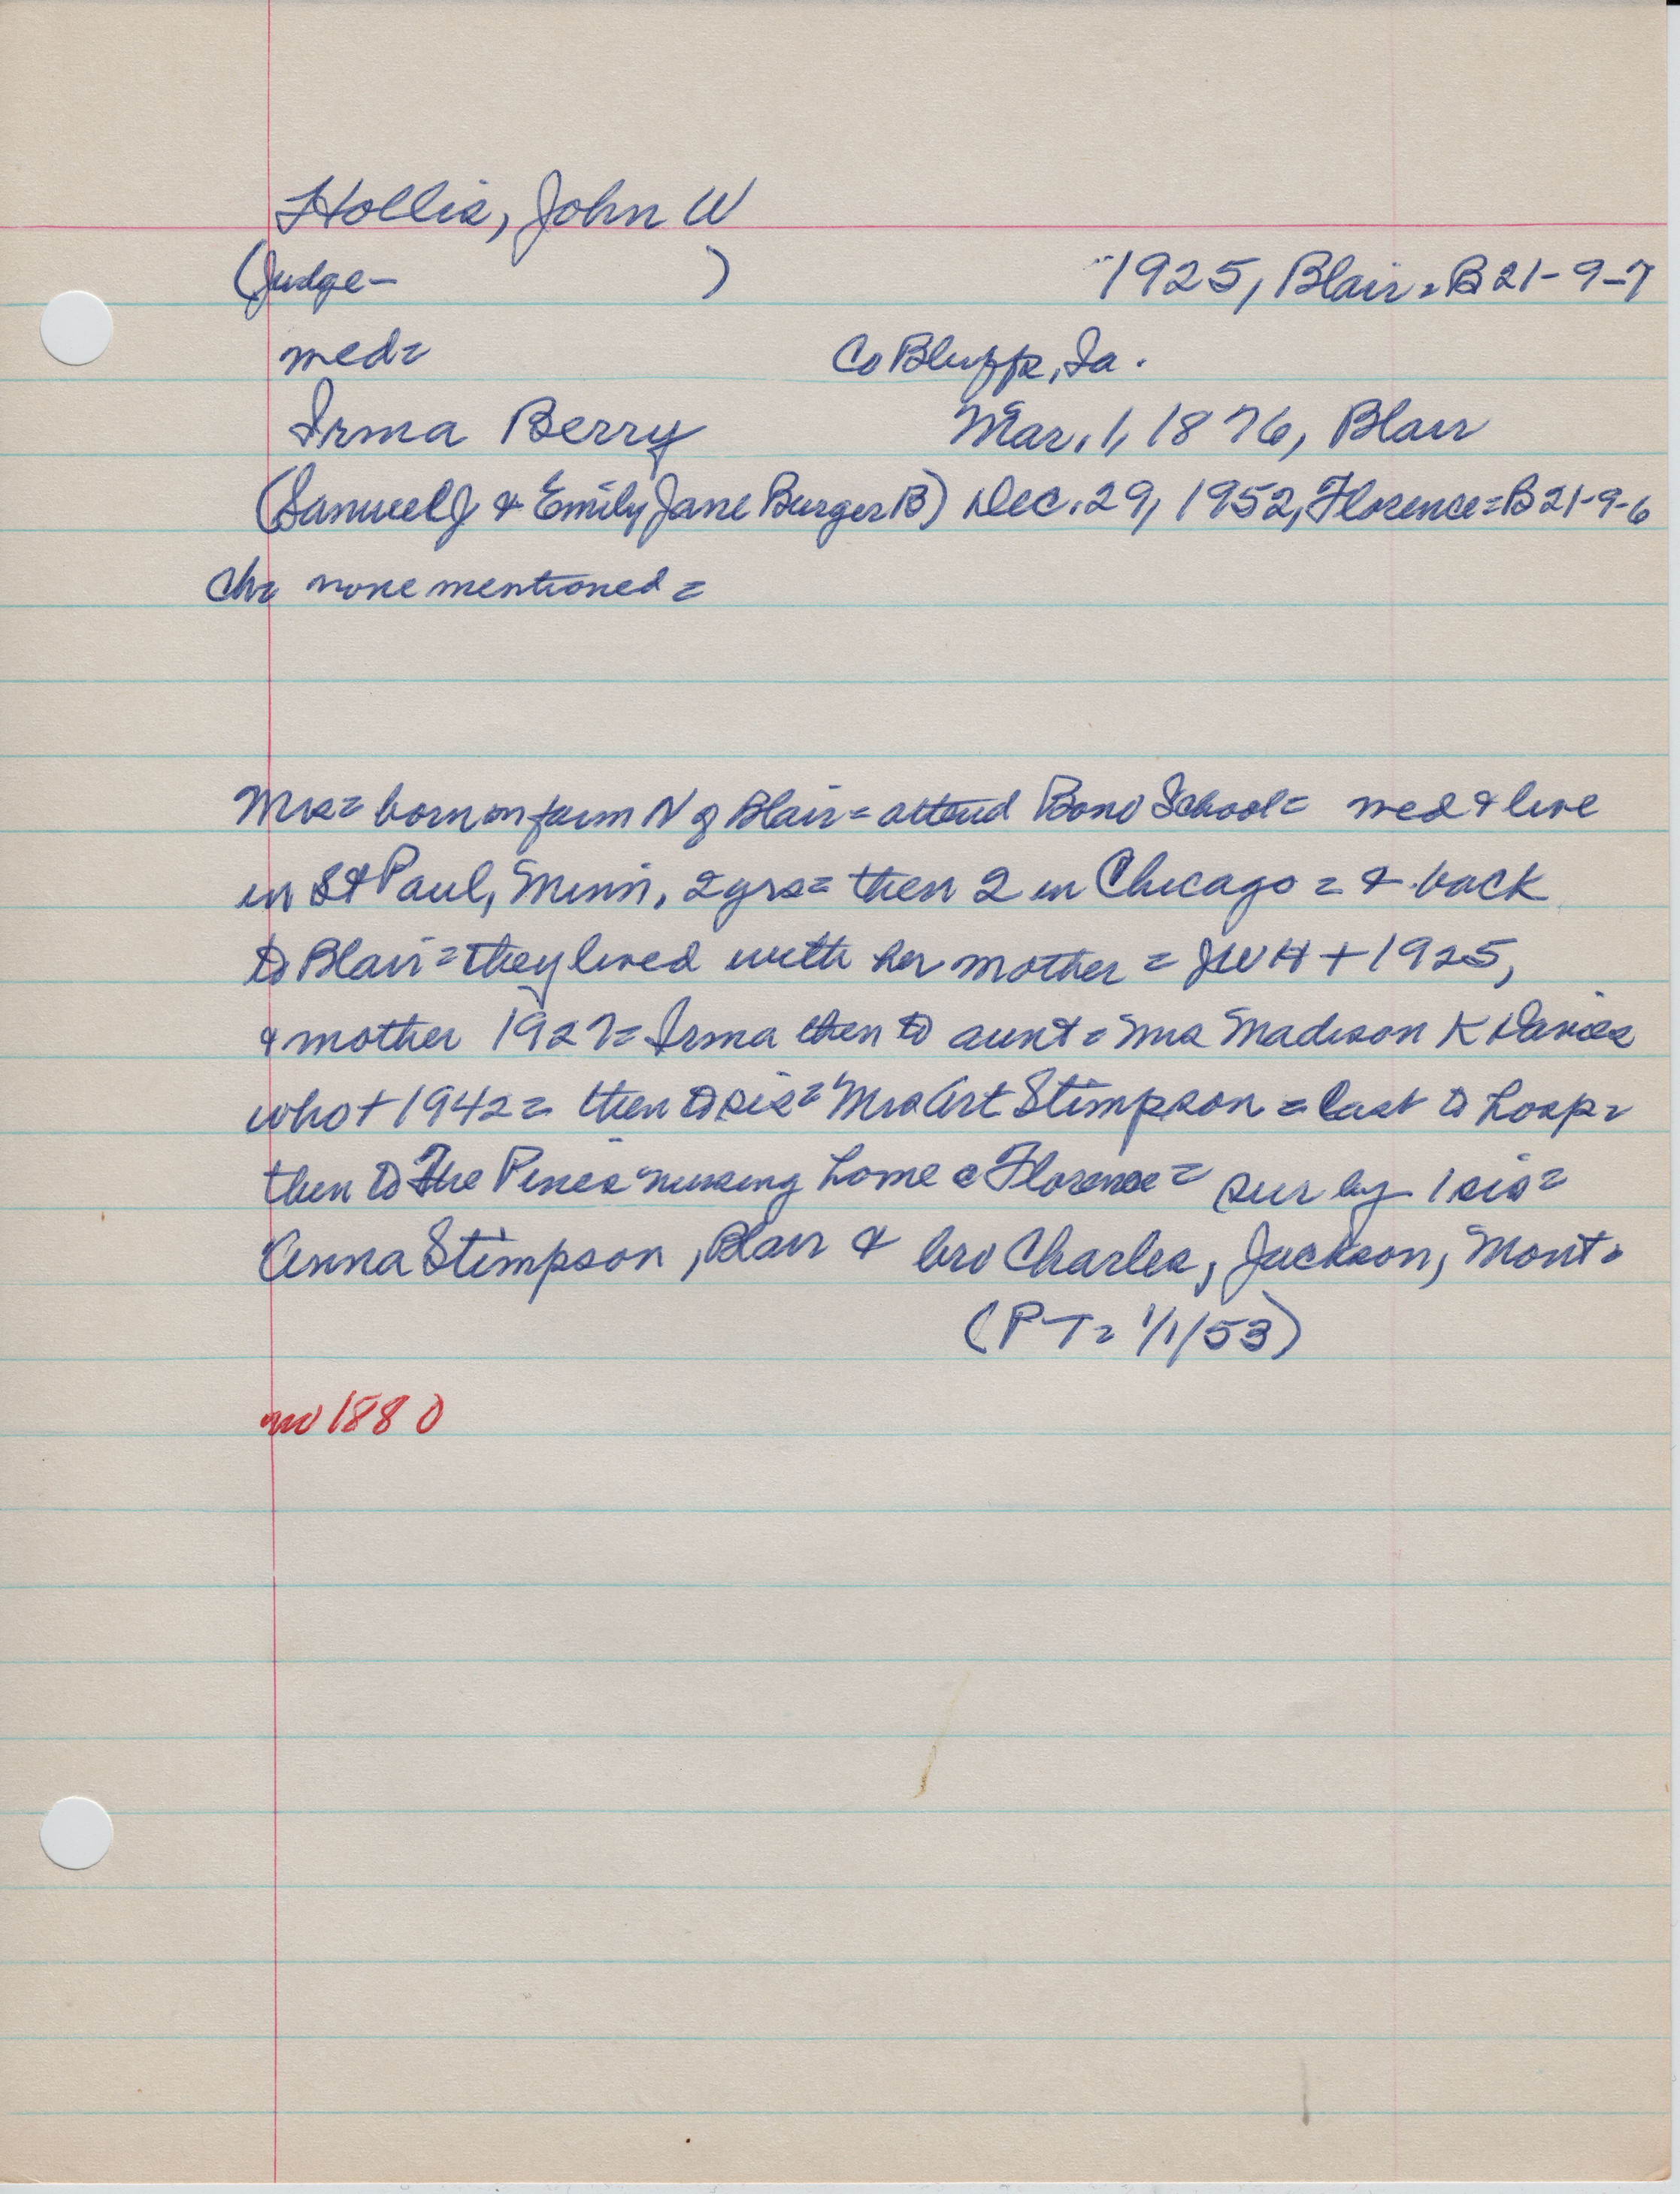 Hollis, John W
(Judge- ) 1925, Blair = B21-9-7
med= Co Bluffs, Ia.
Irma Berry Mar. 1, 1876, Blair
(Samuel J & Emily Jane Burger B) Dec. 29, 1952, Florence = B21-9-6
Ch= none mentioned =
Mrs = born on farm N of Blair = attend Bono School = med & live
in St Paul, Minn, 2 yrs = then 2 in Chicago = & back
to Blair = they lived with her mother = JWH + 1925,
& mother 1927 = Irma then to aunt = Mrs Madison K Davies
who + 1942 = then to sis = Mrs Art Stimpson = last to hosp =
then to The Pines nursing home @ Florence = sur by 1 sis =
Anna Stimpson, Blair & bro Charles, Jackson, Mont =
(PT = 1/1/53)
no 1880